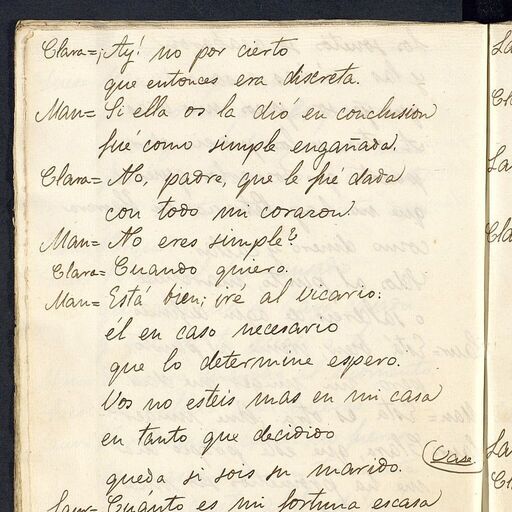 Clara=¡Ay! no por cierto
que entonces era discreta.
Man= Si ella os la dió en conclusion
fué como simple engañada.
Clara= No, padre, que le fué dada
con todo mi corazon.
Man= No eres simple?
Clara= Cuando quiero.
Man= Está bien; iré al vicario:
él en caso necesario
que lo determine espero.
Vos no esteis mas en mi casa
en tanto que decidido
(Vase
queda si sois su marido.
Laur= Cuánto es mi fortuna escasa